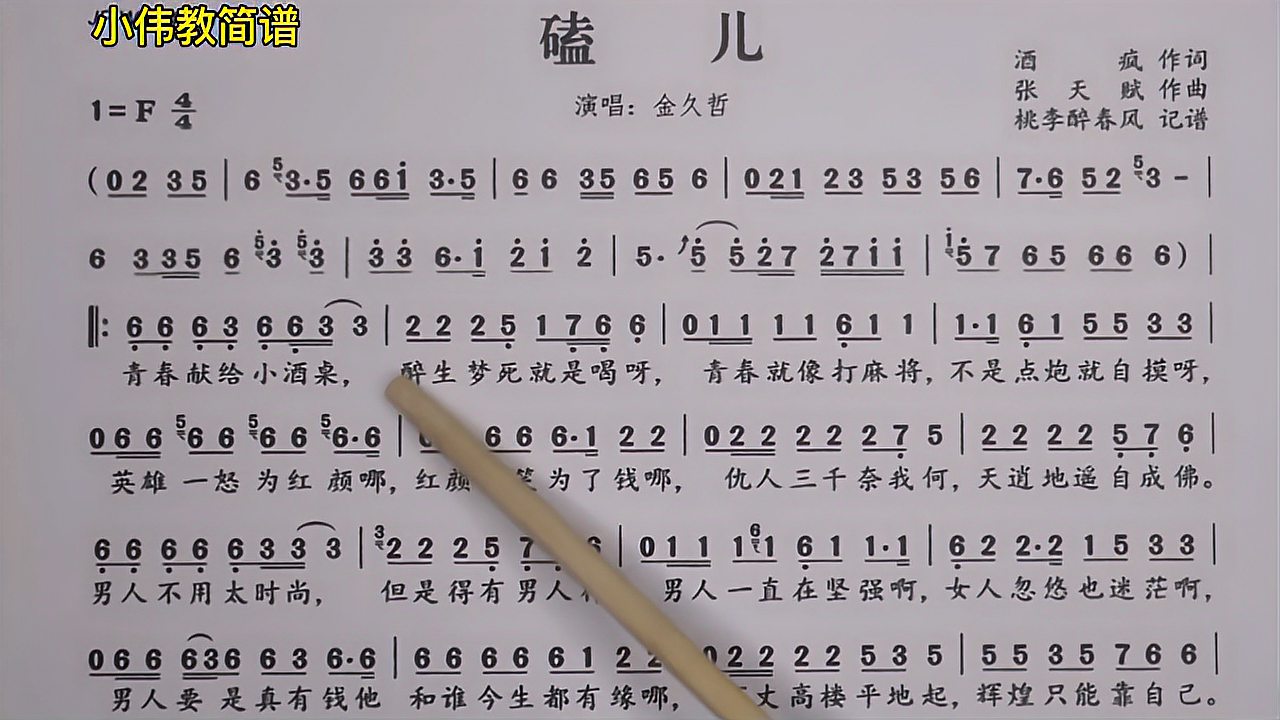 小伟教简谱
磕 儿
酒 疯 作词
1=F 4/4 演唱：金久哲 张 天 赋 作曲
桃李醉春风 记谱
(0 2 3 5 | 6 5 3·5 6 6 i 3·5 | 6 6 3 5 6 5 6 | 0 2 1 2 3 5 3 5 6 | 7·6 5 2 5 3 - |
6 3 3 5 6 6 3 5 3 | 3 3 6·1 2 1 2 | 5· 5 5 2 7 2 7 1 1 | 1 5 7 6 5 6 6 6) |
‖: 6 6 6 3 6 6 3 3 | 2 2 2 5 1 7 6 6 | 0 1 1 1 1 6 1 1 | 1·1 6 1 5 5 3 3 |
青春献给小酒桌， 醉生梦死就是喝呀， 青春就像打麻将，不是点炮就自摸呀，
0 6 6 5 6 6 5 6 6 5 6·6 | 0 6 6 6·1 2 2 | 0 2 2 2 2 2 7 5 | 2 2 2 2 5 7 6 |
英雄一怒为红颜哪，红颜 为了钱哪， 仇人三千奈我何，天逍地遥自成佛。
6 6 6 6 6 3 3 3 | 3 2 2 2 5 7 6 | 0 1 1 1 6 1 6 1 1·1 | 6 2 2·2 1 5 3 3 |
男人不用太时尚， 但是得有男人 男人一直在坚强啊，女人忽悠也迷茫啊，
0 6 6 6 3 6 6 3 6·6 | 6 6 6 6 6 1 2 2 | 0 2 2 2 2 5 3 5 | 5 5 3 5 7 6 6 |
男人要是真有钱他 和谁今生都有缘哪， 丈高楼平地起，辉煌只能靠自己。